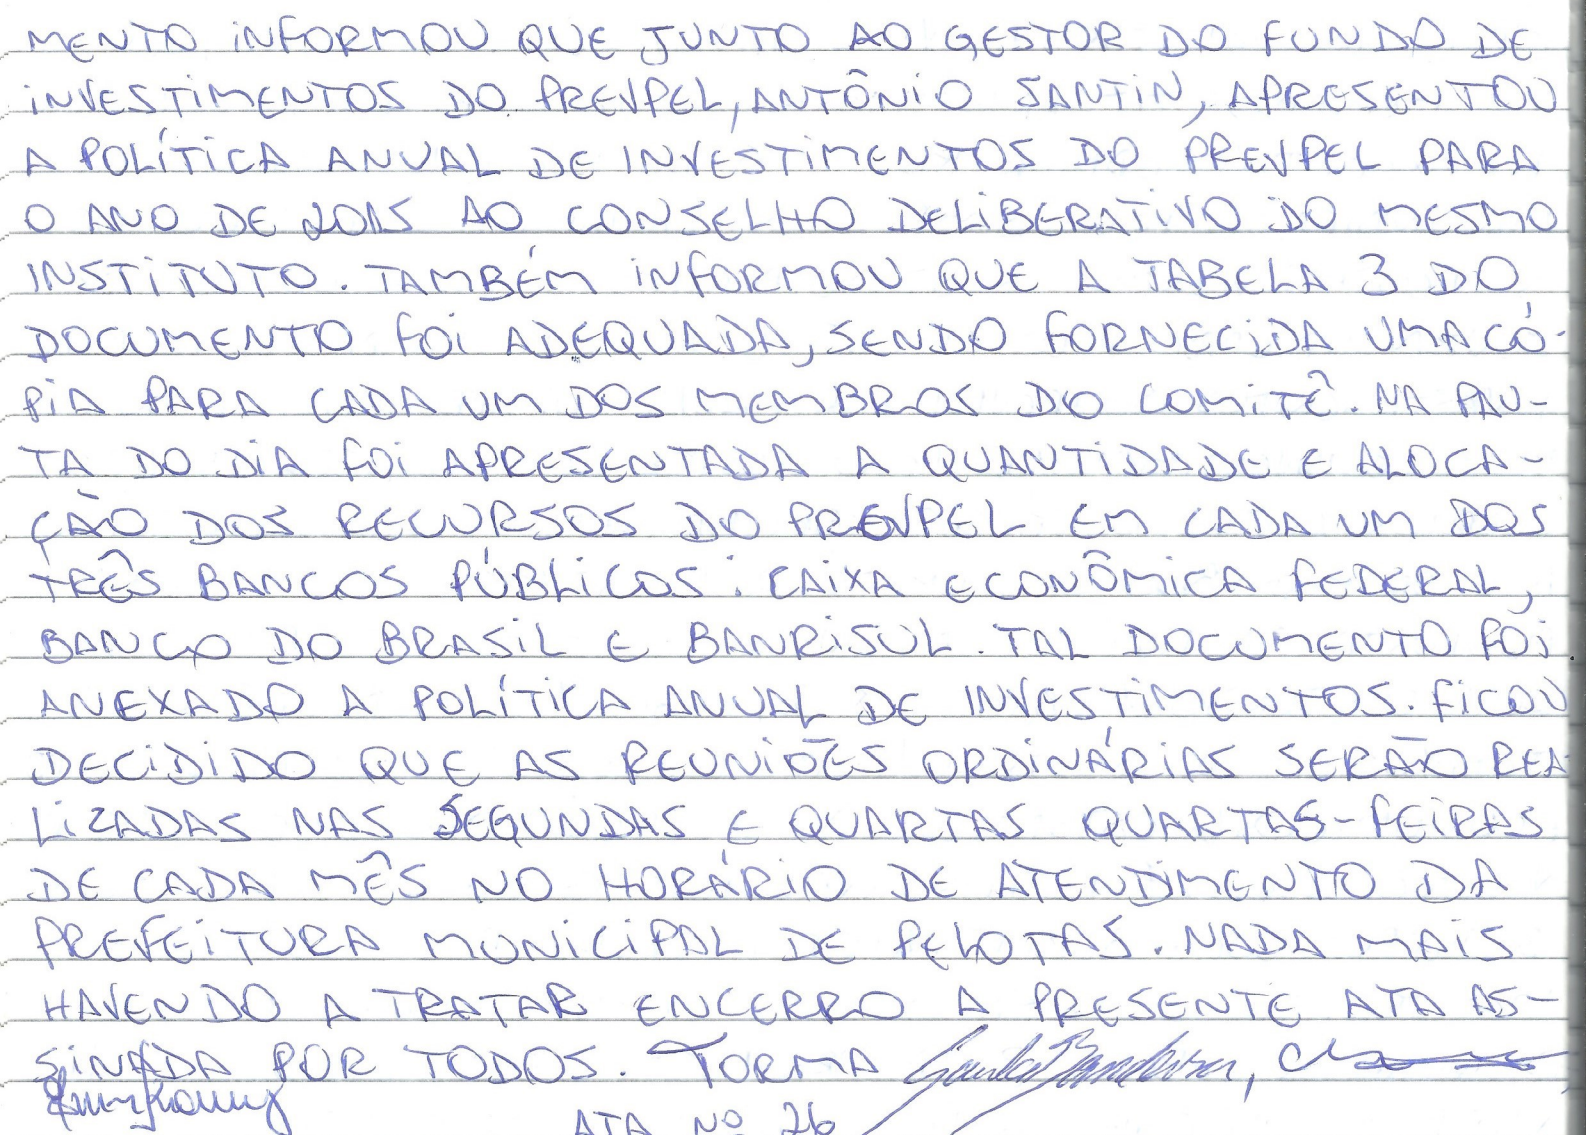 MENTO INFORMOU QUE JUNTO AO GESTOR DO FUNDO DE
INVESTIMENTOS DO PREVPEL, ANTÔNIO SANTIN, APRESENTOU
A POLÍTICA ANUAL DE INVESTIMENTOS DO PREVPEL PARA
O ANO DE 2015 AO CONSELHO DELIBERATIVO DO MESMO
INSTITUTO. TAMBÉM INFORMOU QUE A TABELA 3 DO
DOCUMENTO FOI ADEQUADA, SENDO FORNECIDA UMA CÓ-
PIA PARA CADA UM DOS MEMBROS DO COMITÊ. NA PAU-
TA DO DIA FOI APRESENTADA A QUANTIDADE E ALOCA-
ÇÃO DOS RECURSOS DO PREVPEL EM CADA UM DOS
TRÊS BANCOS PÚBLICOS: CAIXA ECONÔMICA FEDERAL,
BANCO DO BRASIL E BANRISUL. TAL DOCUMENTO FOI
ANEXADO A POLÍTICA ANUAL DE INVESTIMENTOS. FICOU
DECIDIDO QUE AS REUNIÕES ORDINÁRIAS SERÃO REA
LIZADAS NAS SEGUNDAS E QUARTAS QUARTAS-FEIRAS
DE CADA MÊS NO HORÁRIO DE ATENDIMENTO DA
PREFEITURA MUNICIPAL DE PELOTAS. NADA MAIS
HAVENDO A TRATAR ENCERRO A PRESENTE ATA AS-
SINADA POR TODOS. TORMA
ATA Nº 26